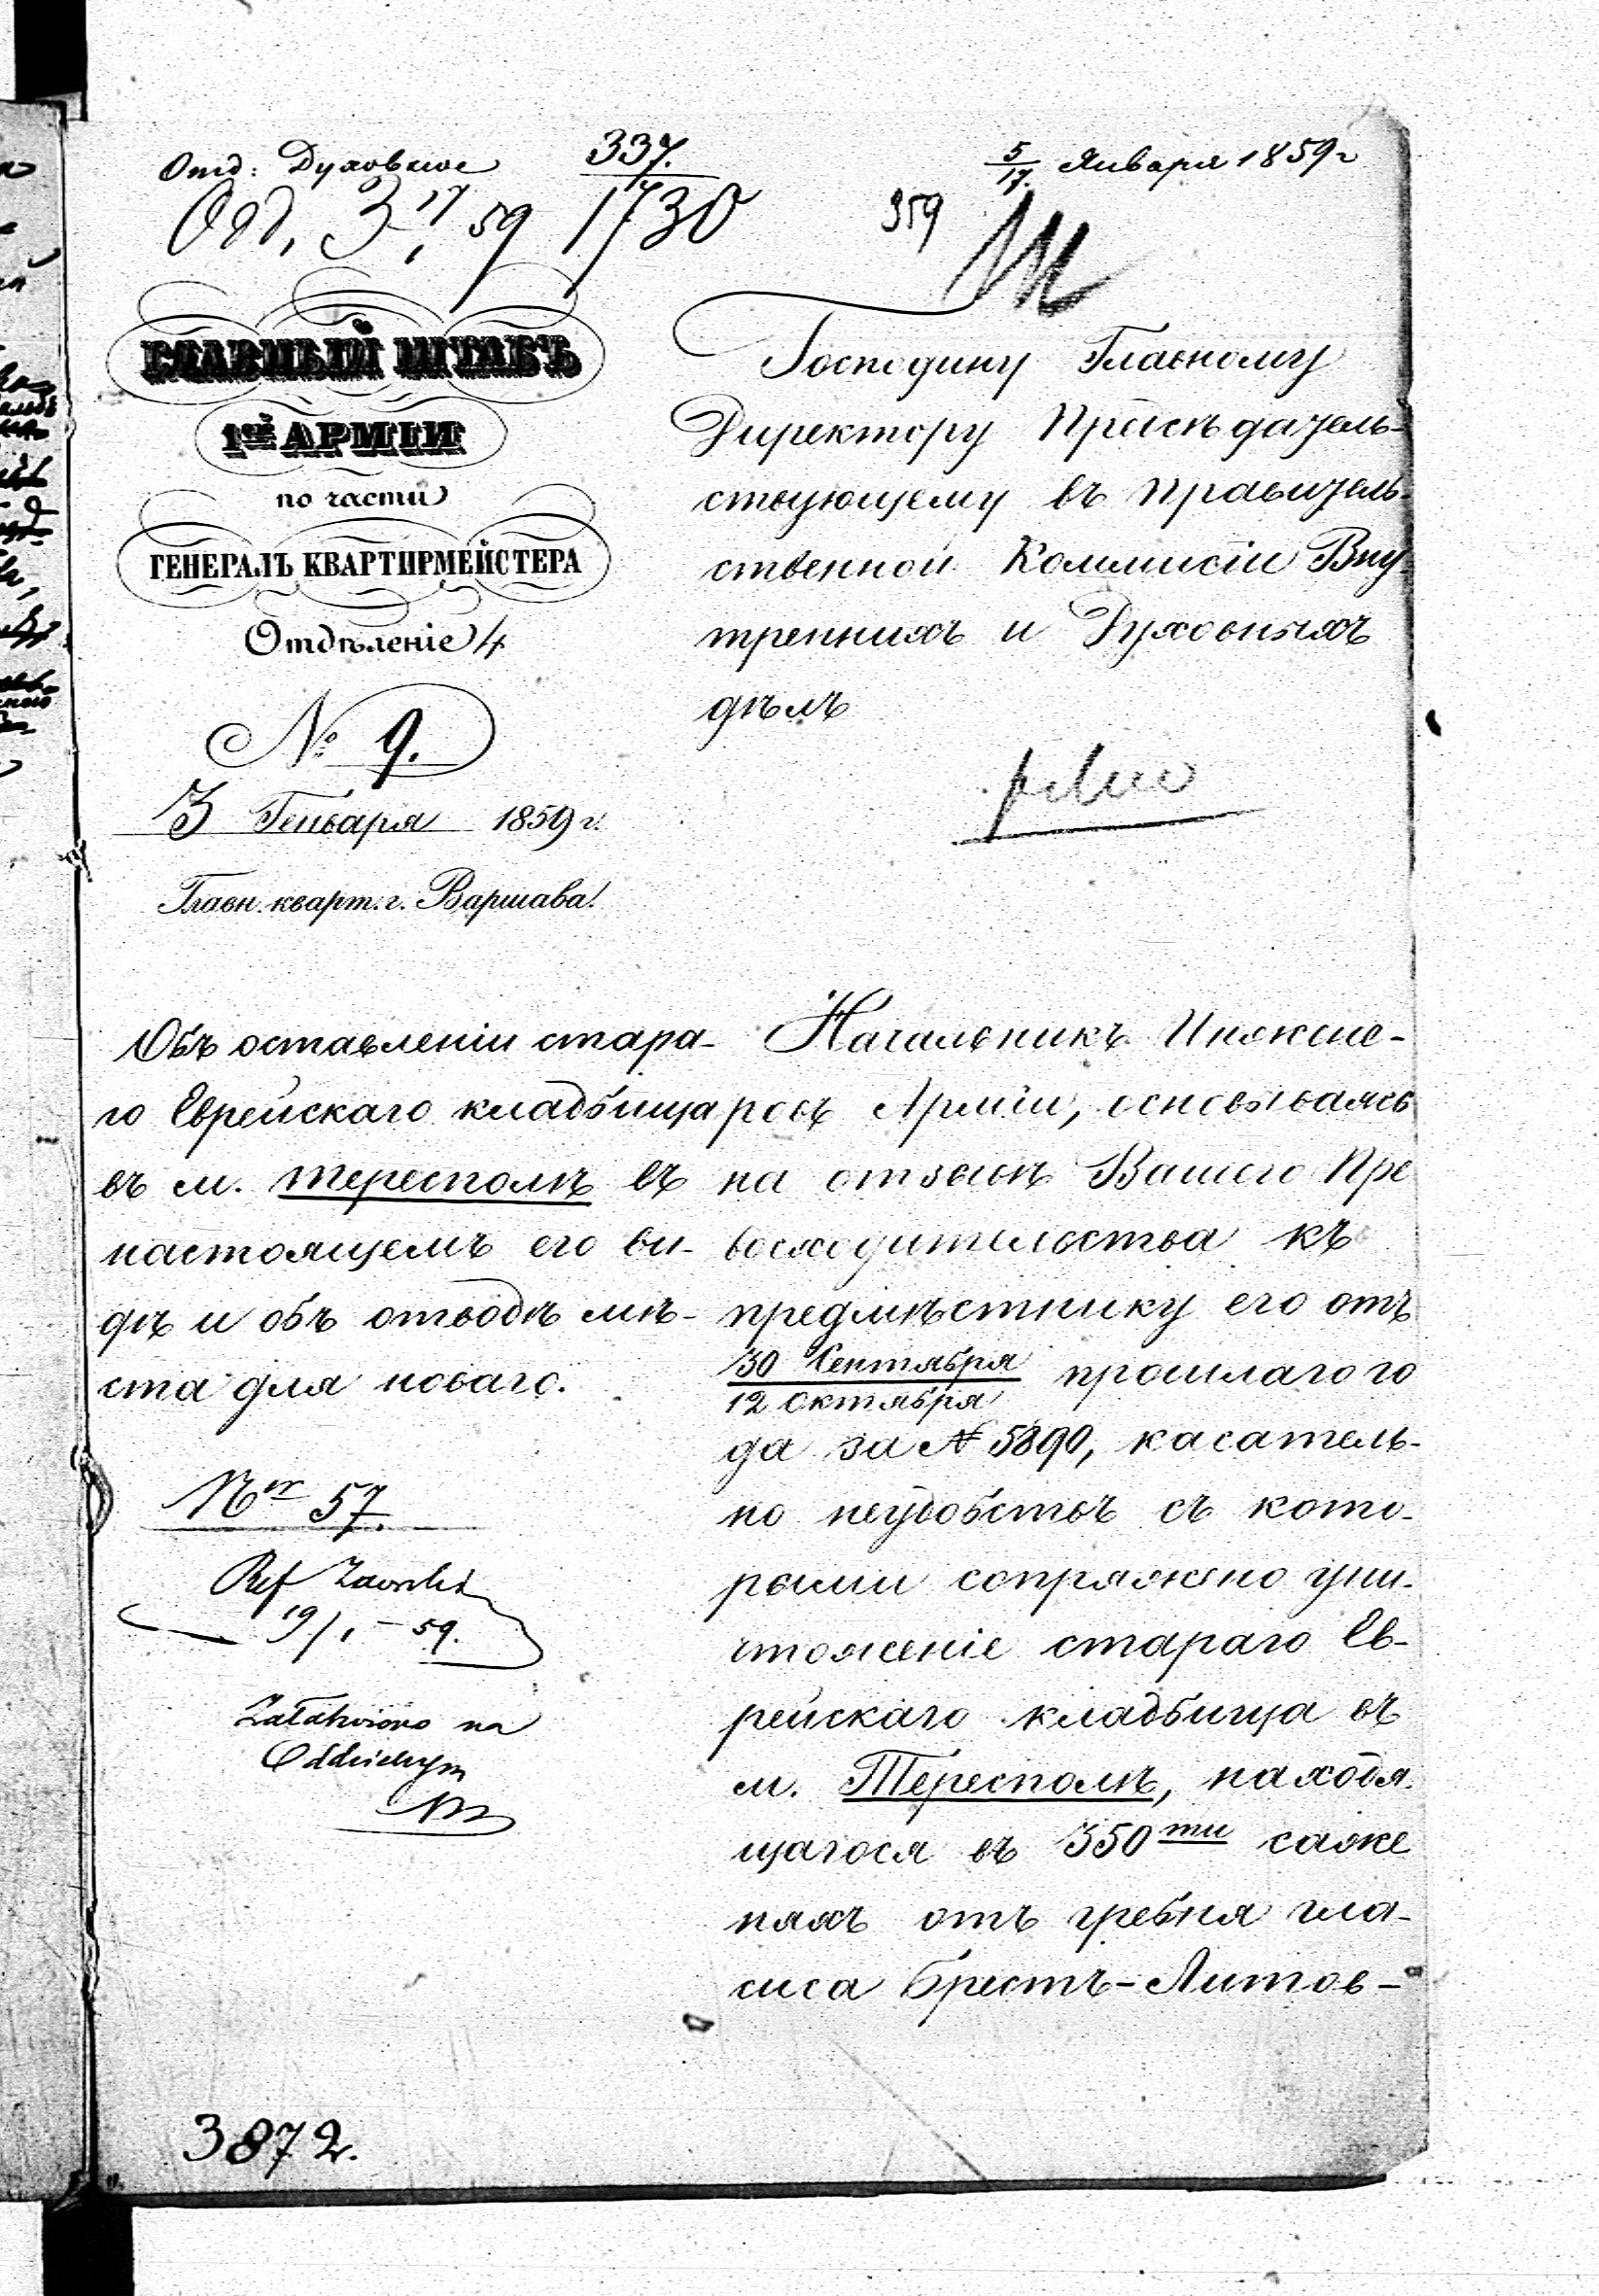 Отд: Духовное 337. 5/17. Января 1859 г
Odd. 3 17/1 59 1730 959
ГЛАВНЫЙ ШТАБЪ
1ой АРМІИ
по части
ГЕНЕРАЛЪ КВАРТИРМЕЙСТЕРА
Отдѣленіе 4
№ 9.
3 Генваря 1859 г.
Главн. кварт. г. Варшава.
Господину Главному
Директору Предсѣдатель-
ствующему въ Правитель-
ственной Коммисіи Вну
треннихъ и Духовныхъ
дѣлъ
pilno
Объ оставленіи стара-
го Еврейскаго кладбища
въ м. Тересполѣ въ
настоящемъ его ви-
дѣ и объ отводѣ мѣ-
ста для новаго.
Nr 57.
Ref
19/1 - 59.
Załatwiono na
Oddzielnym
3872.
Начальникъ Инжене-
ровъ Арміи, основываясь
на отзывѣ Вашего Пре
восходительства къ
предмѣстнику его отъ
30 Сентября
12 Октября прошлаго го
да за № 5890, касатель-
но неудобствъ съ кото-
рыми сопряжено уни-
чтоженіе стараго Ев-
рейскаго кладбища въ
м. Тересполѣ, находя-
щагося въ 350ти саже
няхъ отъ гребня гла-
сиса Брестъ-Литов-